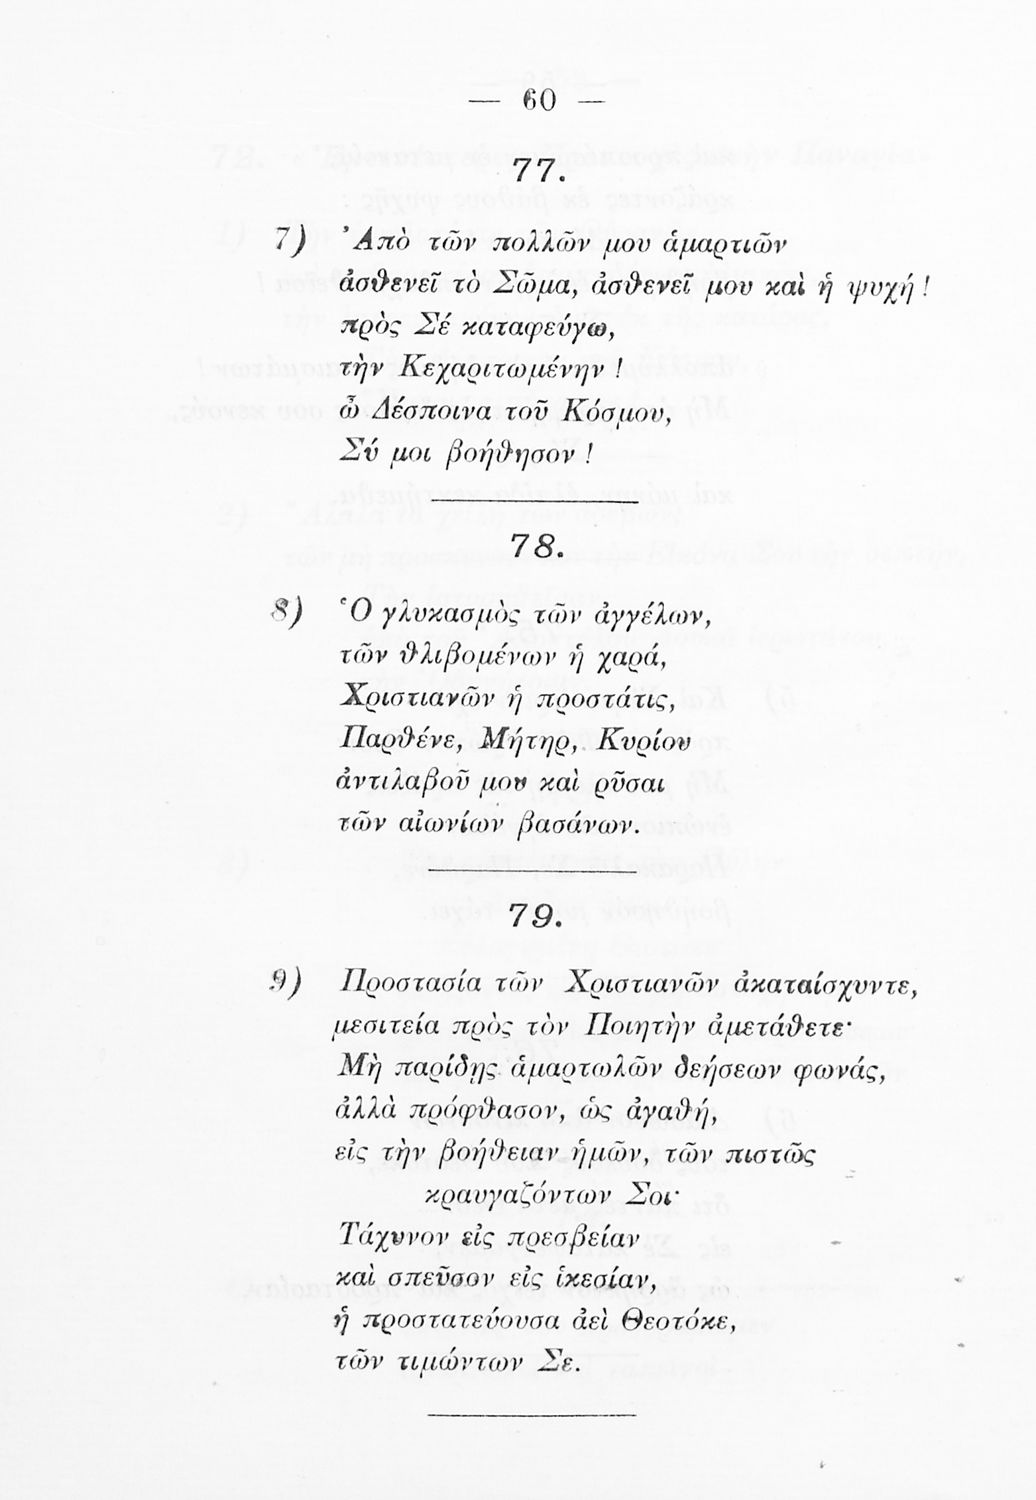 — 60 —
77.
7) Ἀπὸ τῶν πολλῶν μου ἁμαρτιῶν
ἀσθενεῖ τὸ Σῶμα, ἀσθενεῖ μου καὶ ἡ ψυχή !
πρὸς Σέ καταφεύγω,
τὴν Κεχαριτωμένην !
ὦ Δέσποινα τοῦ Κόσμου,
Σύ μοι βοήθησον !
78.
8) Ὁ γλυκασμὸς τῶν ἀγγέλων,
τῶν θλιβομένων ἡ χαρά,
Χριστιανῶν ἡ προστάτις,
Παρθένε, Μήτηρ, Κυρίου
ἀντιλαβοῦ μου καὶ ρῦσαι
τῶν αἰωνίων βασάνων.
79.
9) Προστασία τῶν Χριστιανῶν ἀκαταίσχυντε,
μεσιτεία πρὸς τὸν Ποιητὴν ἀμετάθετε·
Μὴ παρίδῃς ἁμαρτωλῶν δεήσεων φωνάς,
ἀλλὰ πρόφθασον, ὡς ἀγαθή,
εἰς τὴν βοήθειαν ἡμῶν, τῶν πιστῶς
κραυγαζόντων Σοι·
Τάχυνον εἰς πρεσβείαν
καὶ σπεῦσον εἰς ἱκεσίαν,
ἡ προστατεύουσα ἀεὶ Θεοτόκε,
τῶν τιμώντων Σε.